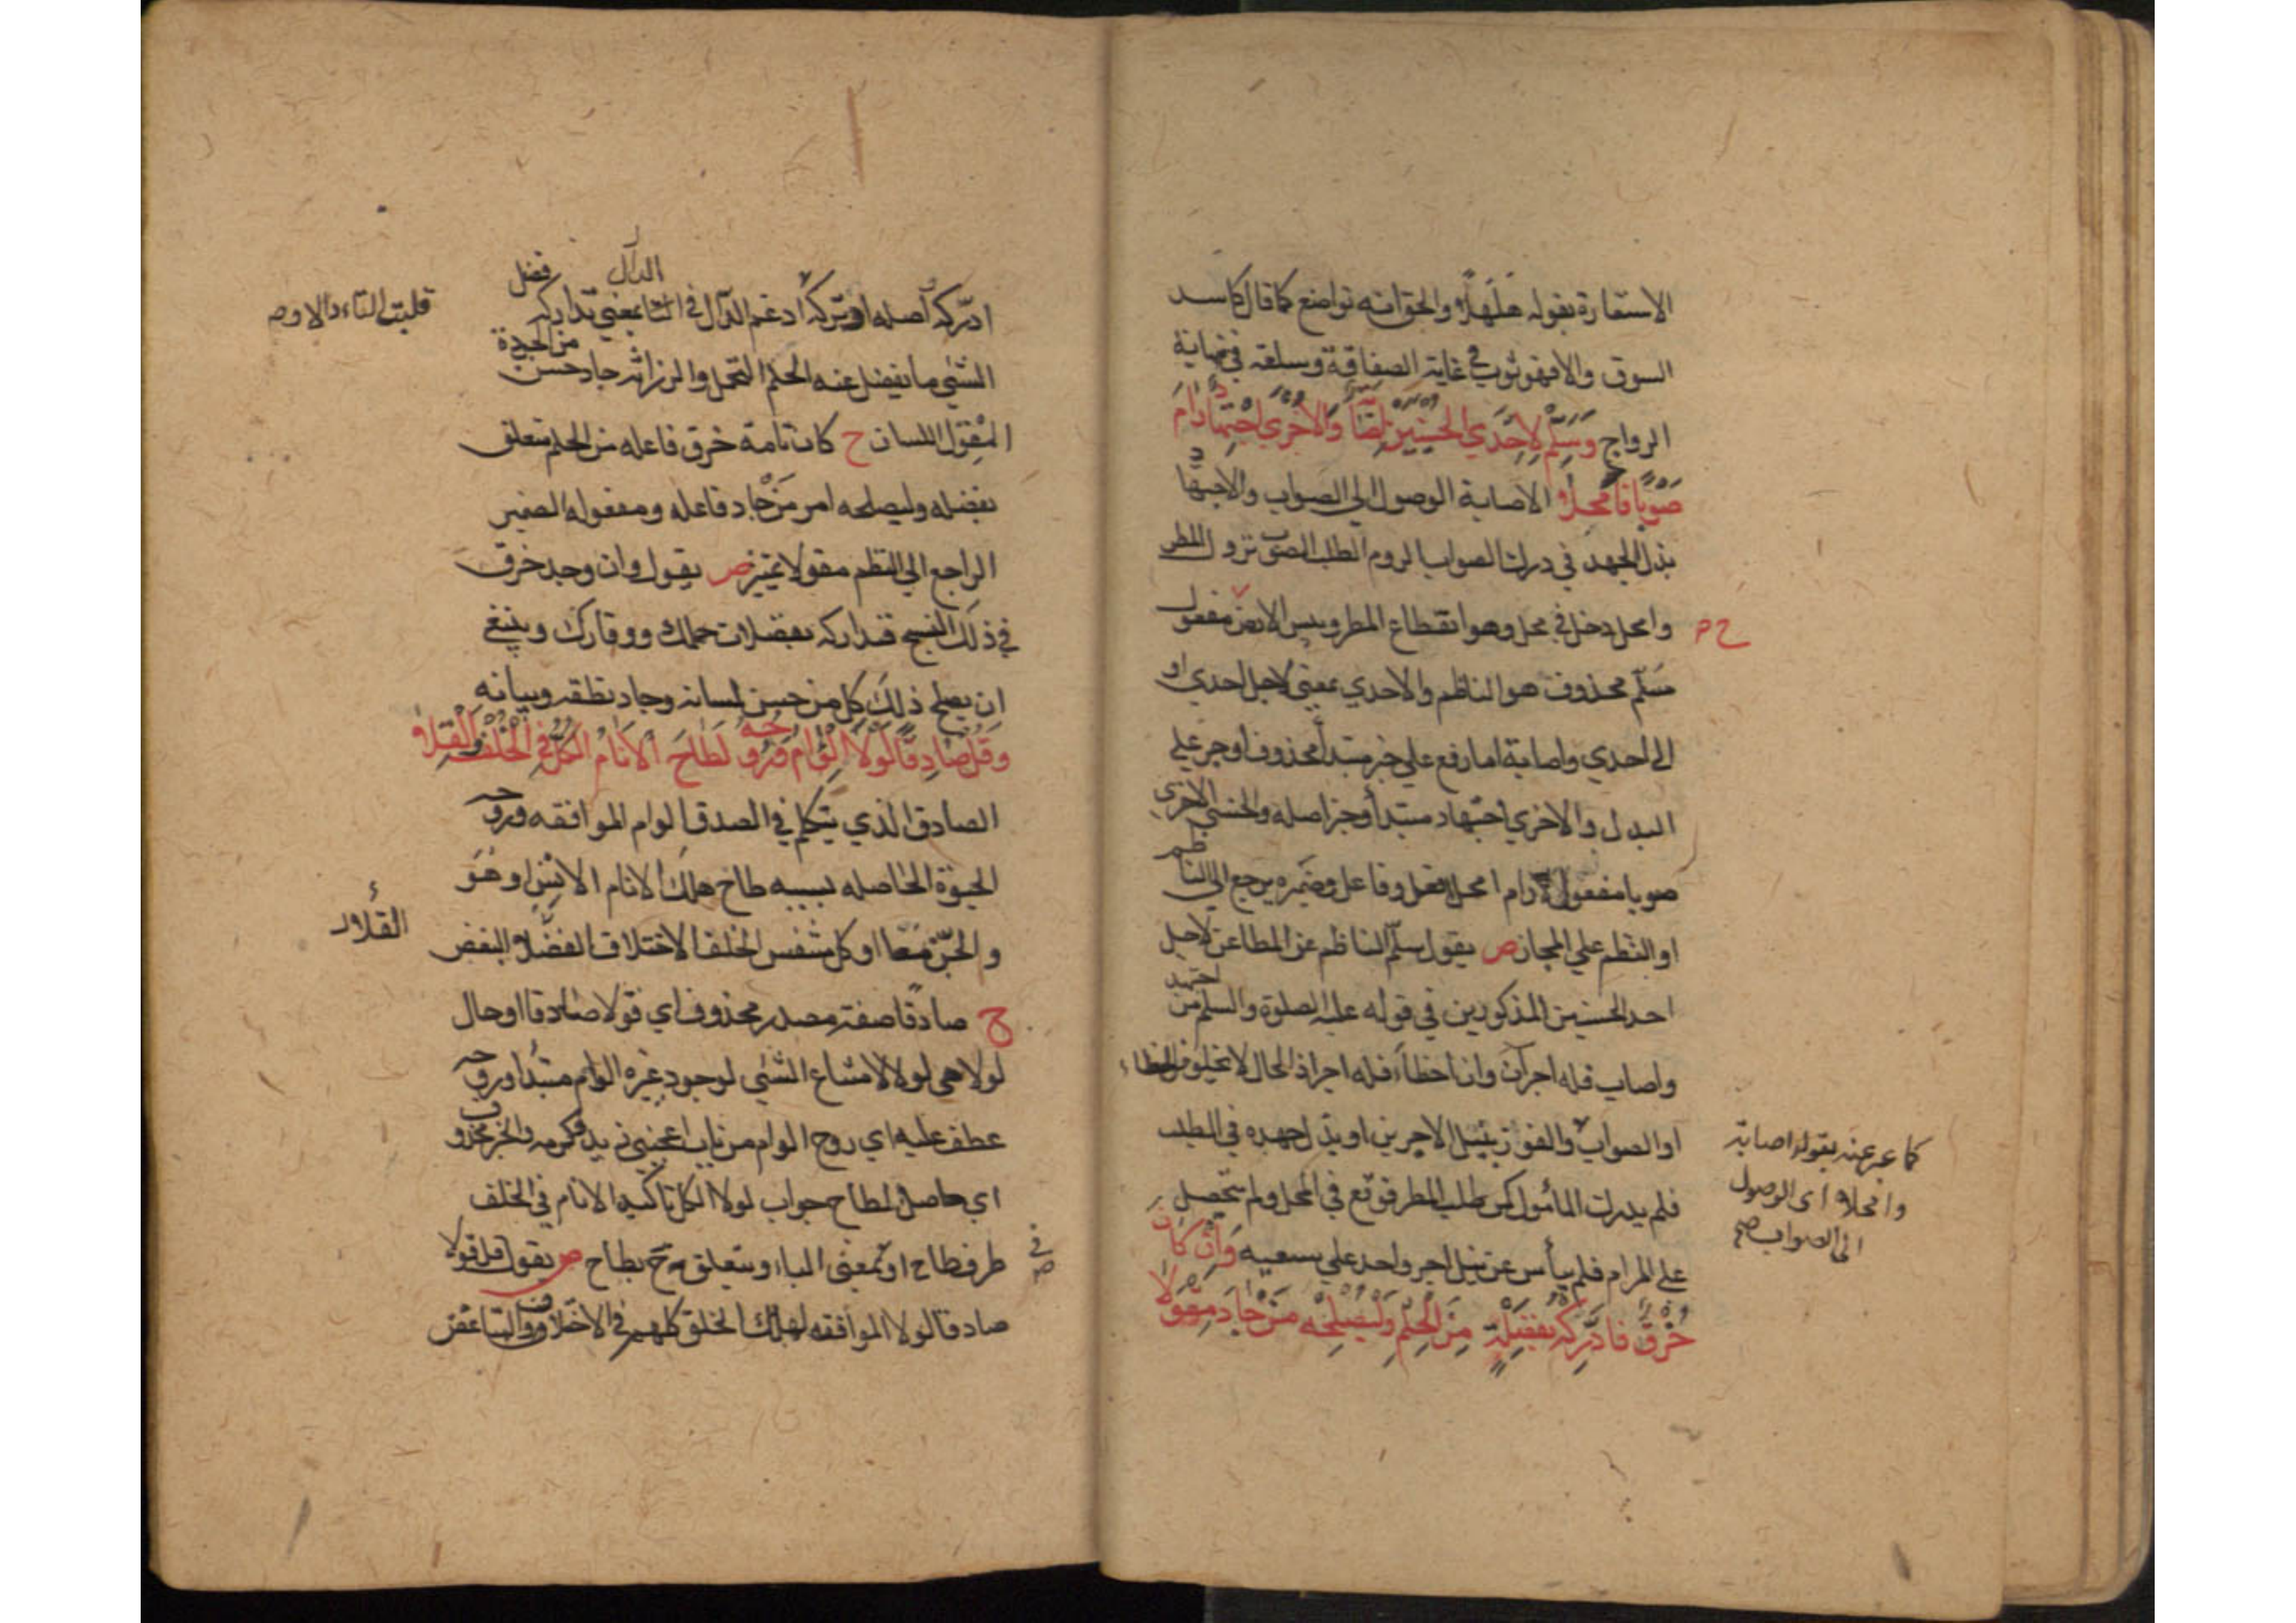 الاستعارة بقوله هلهلا والحق انه تواضع كما قال كاسد
السوق والا فهو ثوب في غاية الصفاقة وسلعة في نهاية
الرواج وَسَلِّمْ لِاِحْدَي الحُسْنَيَيْنِ اِصَابَةٌ وَالاُخْرَي اجْتِهَادٌ رَامَ
صَوْبًا فَامْحَلاَ الاصابة الوصول الي الصواب والاجتهاد
بذل الجهد في درك الصواب الروم الطلب الصوب نزول المطر
وامحل دخل في محل وهو انقطاع المطر ويبس الارض ح مفعول
سَلِّم محذوف هو الناظم والاحدي بمعني لاجل احدي او
الي احدي واصابة اما رفع علي خبر مبتدأ محذوف او جر علي
البدل والاخري اجتهاد مبتدأ وخبر اصله والحسني الاخري
صوبا مفعول رام امحلا فعل وفاعل وضميره يرجع الي الناظم
او النظم علي المجاز ص يقول سلّم الناظم عن المطاعن لاجل
احد الحسنيين المذكورين في قوله عليه الصلوة والسلم من اجتهد
واصاب فله اجران وان اخطأ فله اجر اذ الحال لا تخلو من الخطاء
او الصواب والفوز بنيل الاجرين او بذل جهده في الطلب
كما عبر عنه بقوله اصابة
وامحلا اي الوصول
الي الصواب صح
فلم يدرك المأمول كمن طلب المطر فوقع في المحل ولم يتحصل
علي المرام فلم ييأس عن نيل اجر واحد علي سعيه وَاِنْ كَانَ
خُرْقٌ فَادَّرِكْهُ بِفَضْلَةٍ مِنَ الحِلْمِ وَلْيُصْلِحْهُ مَنْ جَادَ مِقْوَلاَ
ادّركه اصله ادتركه ادغم الدال في التا بمعني تداركه فضل
الدال
قلبت التاء دالا وص
الشئي ما يفضل عنه الحلم التحمل والرزانه جاد حسن من الجودة
المِقْوَل اللسان ح كان تامة خرق فاعله من الحلم متعلق
بفضله وليصلحه امر مَنْ جاد فاعله ومفعوله الضمير
الراجع الي النظم مقولا تميز ص يقول وان وجد خرق
في ذلك النسج فتداركه بفضلات حملك ووقارك وينبغي
ان يصلح ذلك كل من حسن لسانه وجاد نطقه وبيانه
وَقُلْ صَادِقًا لَوْلاَ الوِئَامُ وَرُوحُهُ لَطَاحَ الاَنَامُ الكُلُّ فِي الْخُلْفِ وَالْقِلاَ
الصادق الذي يتكلم في الصدق الوام الموافقه وروحه
الحيوة الحاصله بسببه طاح هلك الانام الانس او هو
والجن معا او كل متنفس الخلف الاختلاف القلا البغض
القلاء
ح صادقا صفة مصدر محذوف اي قولا صادقا او حال
لولا هي لولا لامتناع الشئي لوجود غيره الوام مبتدا وروحه
عطف عليه اي روح الوام من باب اعجبني زيد وكرمه والخبر محذوف
اي حاصل لطاح جواب لولا الكل تاكيد الانام في الخلف
ظرف طاح او بمعني الباء ومتعلق بطاح ص يقول قل قولا
صادقا لولا الموافقه لهلك الخلق كلهم في الاختلاف والتباغض